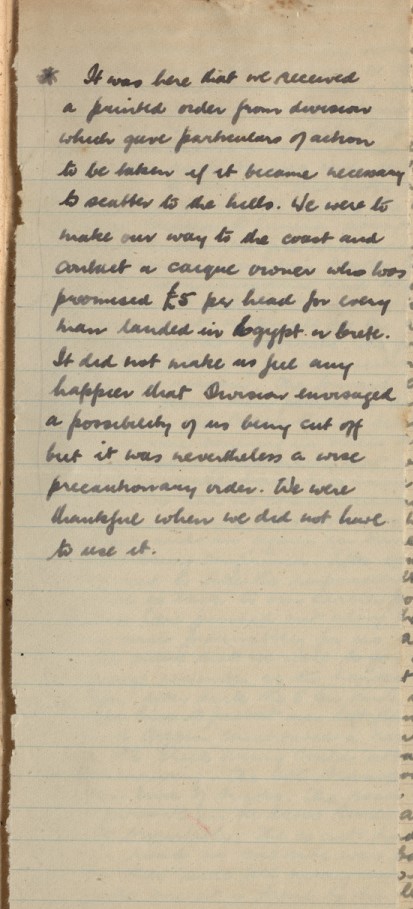 * It was here that we received
a printed order from division
which gave particulars of action
to be taken if it became necessary
to scatter to the hills. We were to
make our way to the coast and
contact a caique owner who was
promised £5 per head for every
man landed in Egypt or Crete.
It did not make us feel any
happier that Division envisaged
a possibility of us being cut off
but it was nevertheless a wise
precautionary order. We were
thankful when we did not have
to use it.